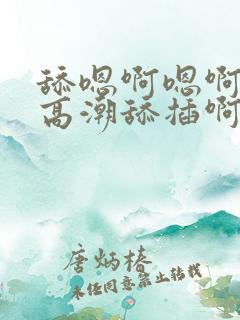 舔嗯啊嗯啊
高潮舔插啊
唐炳椿
未经同意禁止转载